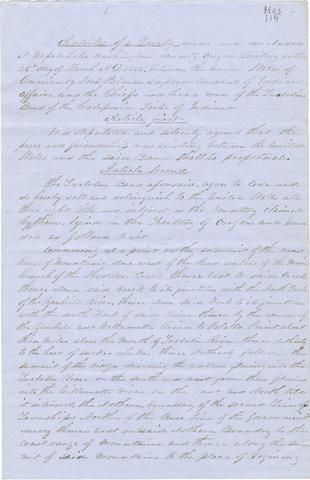 Mss
114
Articles of a Treaty made and concluded
at Wapato Lake Washington County Oregon Territory on the
25th day of March A.D. 1854, between the United States of
America by Joel Palmer Superintendent of Indian
affairs, and the Chiefs and head men of the Tualatin
Band of the Calapooia Tribe of Indians.
Article first
It is stipulated and solemnly agreed that the
peace and friendship now existing between the United
States and the said Band shall be perpetual.
Article Second
The Tualatin Band aforesaid agree to cede and
do hereby sell and relinquish to the United States all
their right title and interest in the Country claimed
by them, lying in the Territory of Oregon and boun-
ded as follows, to wit
commencing at a point on the summit of the coast
range of mountains due west of the head waters of the
branch of the Creek thence east to said Creek
thence down said creek to its junction with the North Fork
of the Yamhill River, thence down said Fork to its junction
with the South Fork of said River thence by the course of
the Yamhill and Willamette Rivers to
miles above the mouth of Tualatin River thence
to the head of Lake thence Northerly following the
summit of the ridge dividing the waters flowing into the
Tualatin River on the south and west from those flowing
into the Willamette River on the east and North till
it intersects the Northern boundary of the second line of
Townships North of the Base line of the Government
survey thence west on said Northern Boundary to the
coast range of Mountains and thence along the sum-
mit of said Mountains to the place of beginning